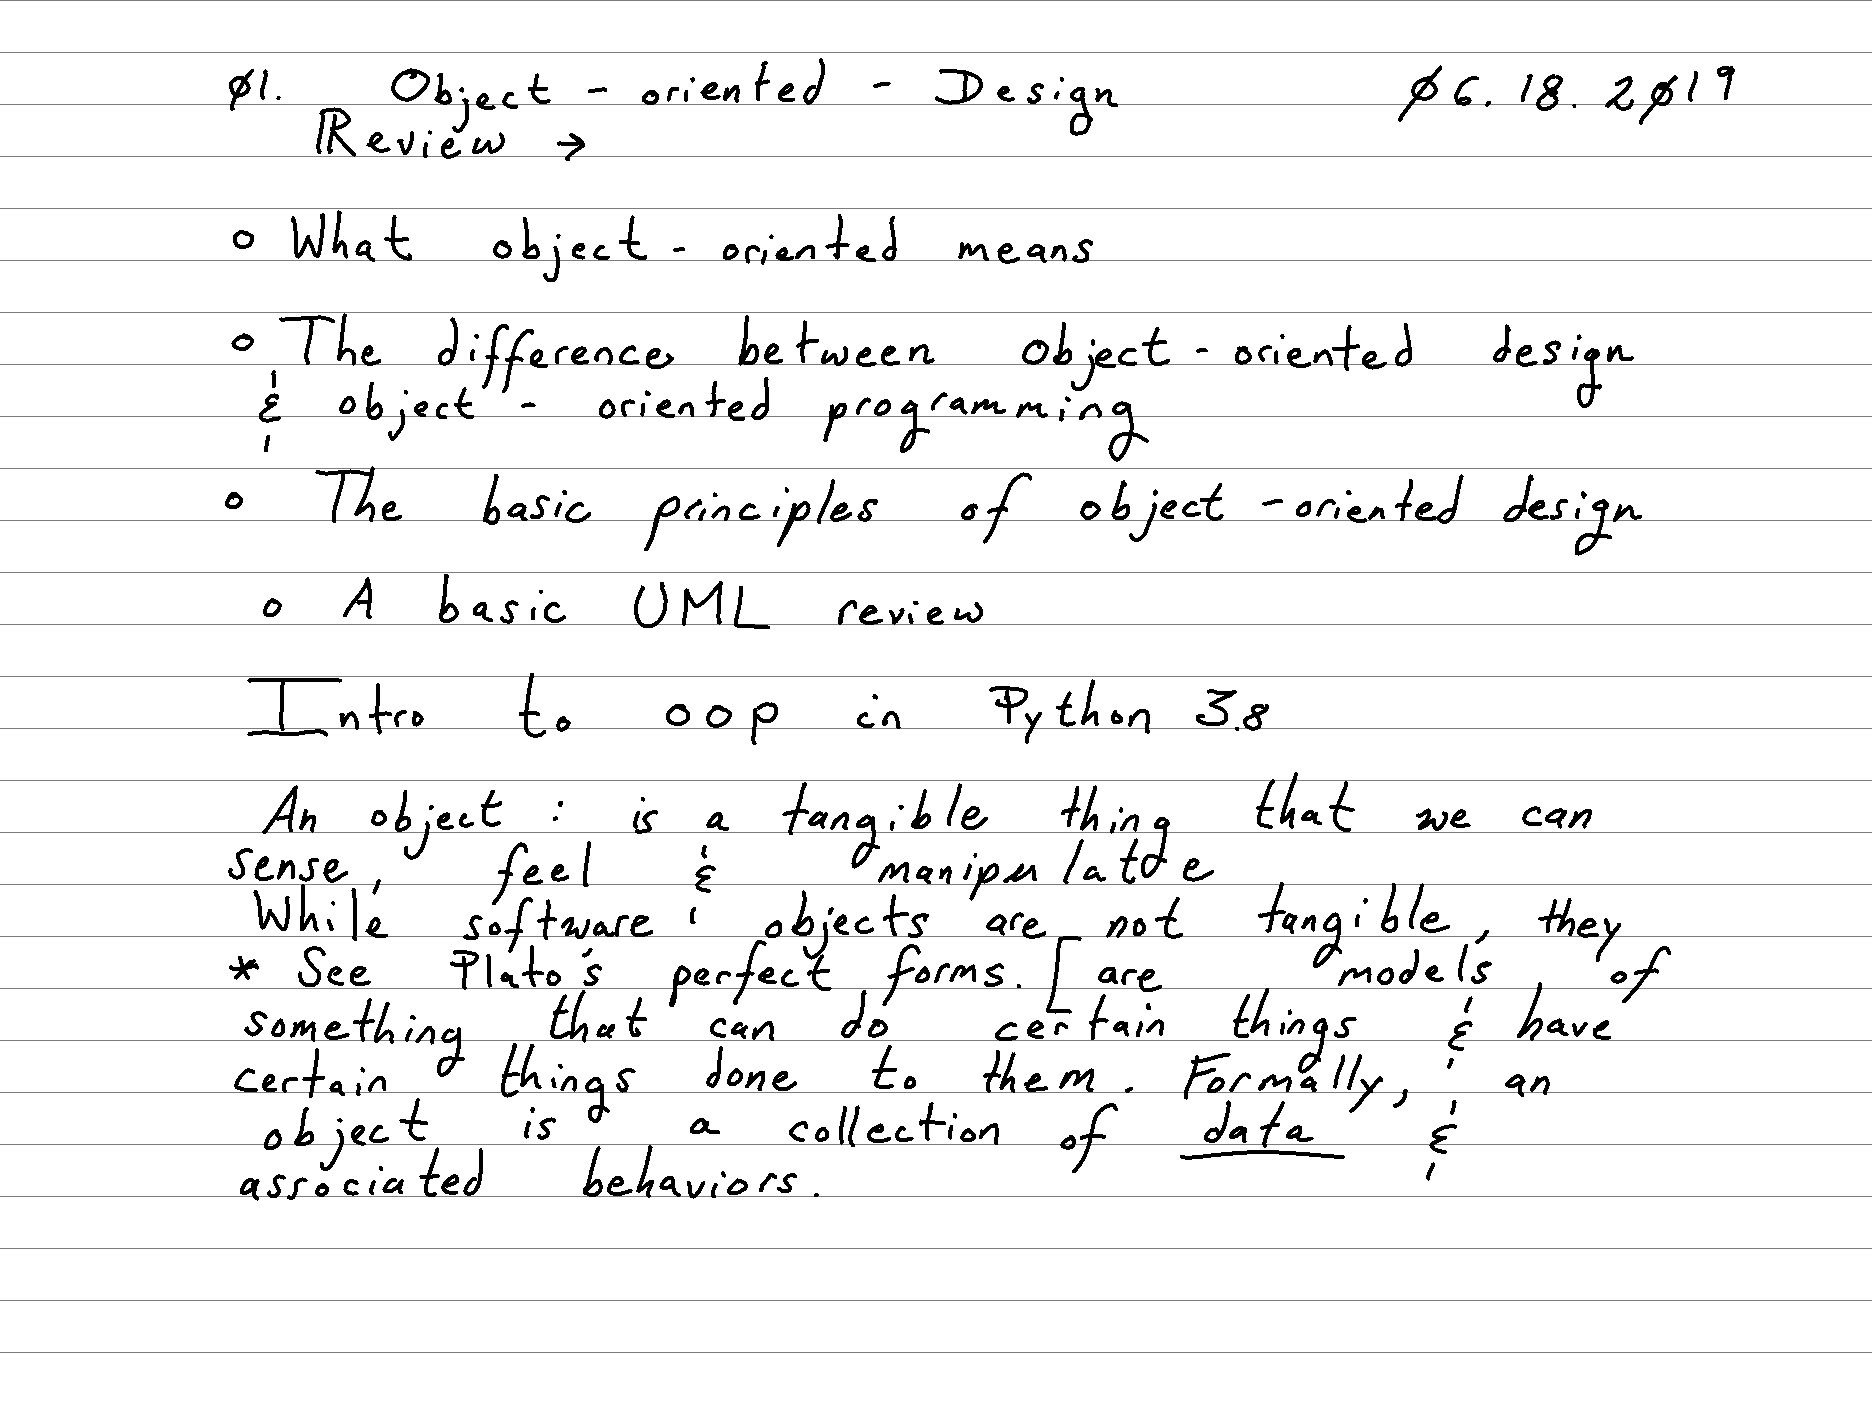 Ø1. Object - oriented - Design Ø6.18.2Ø19
Review →
o What object - oriented means
o The difference between object - oriented design
& object - oriented programming
o The basic principles of object - oriented design
o A basic UML review
Intro to oop in Python 3.8
An object : is a tangible thing that we can
sense, feel & manipulatde
While software objects are not tangible, they
* See Plato's perfect forms. [ are models of
something that can do certain things & have
certain things done to them. Formally, an
object is a collection of data &
associated behaviors.